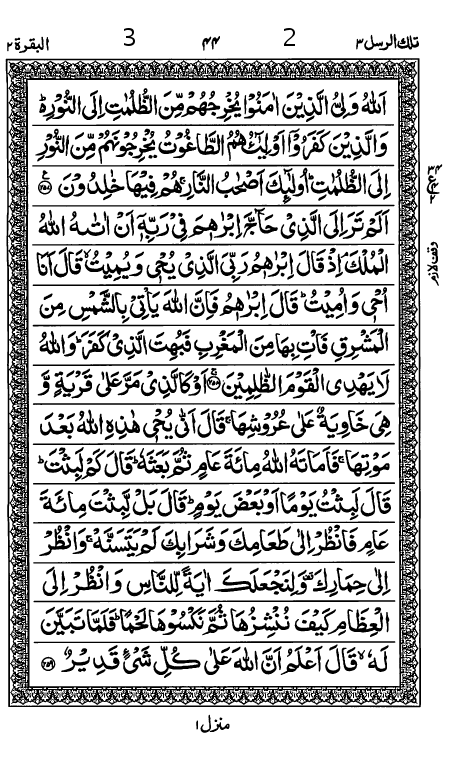 تلك الرسل ٣ 2 ٤٤ 3 البقرة ٢
اَللّٰهُ وَلِىُّ الَّذِيْنَ اٰمَنُوْا يُخْرِجُهُمْ مِّنَ الظُّلُمٰتِ اِلَى النُّوْرِؕ
وَالَّذِيْنَ كَفَرُوْۤا اَوْلِيٰٓئُهُمُ الطَّاغُوْتُ يُخْرِجُوْنَهُمْ مِّنَ النُّوْرِ
اِلَى الظُّلُمٰتِؕ اُولٰٓئِكَ اَصْحٰبُ النَّارِۚ هُمْ فِيْهَا خٰلِدُوْنَ ﴿۲۵۷﴾
اَلَمْ تَرَ اِلَى الَّذِىْ حَآجَّ اِبْرٰهٖمَ فِىْ رَبِّهٖۤ اَنْ اٰتٰىهُ اللّٰهُ
الْمُلْكَۘ اِذْ قَالَ اِبْرٰهٖمُ رَبِّىَ الَّذِىْ يُحْىٖ وَيُمِيْتُۙ قَالَ اَنَا
اُحْىٖ وَاُمِيْتُؕ قَالَ اِبْرٰهٖمُ فَاِنَّ اللّٰهَ يَاْتِىْ بِالشَّمْسِ مِنَ
الْمَشْرِقِ فَاْتِ بِهَا مِنَ الْمَغْرِبِ فَبُهِتَ الَّذِىْ كَفَرَؕ وَاللّٰهُ
لَا يَهْدِى الْقَوْمَ الظّٰلِمِيْنَ ﴿۲۵۸﴾ اَوْ كَالَّذِىْ مَرَّ عَلٰى قَرْيَةٍ وَّ
هِىَ خَاوِيَةٌ عَلٰى عُرُوْشِهَاۚ قَالَ اَنّٰى يُحْىٖ هٰذِهِ اللّٰهُ بَعْدَ
مَوْتِهَاۚ فَاَمَاتَهُ اللّٰهُ مِائَةَ عَامٍ ثُمَّ بَعَثَهٗؕ قَالَ كَمْ لَبِثْتَؕ
قَالَ لَبِثْتُ يَوْمًا اَوْ بَعْضَ يَوْمٍؕ قَالَ بَلْ لَّبِثْتَ مِائَةَ
عَامٍ فَانْظُرْ اِلٰى طَعَامِكَ وَشَرَابِكَ لَمْ يَتَسَنَّهْۚ وَانْظُرْ
اِلٰى حِمَارِكَ وَلِنَجْعَلَكَ اٰيَةً لِّلنَّاسِ وَانْظُرْ اِلَى
الْعِظَامِ كَيْفَ نُنْشِزُهَا ثُمَّ نَكْسُوْهَا لَحْمًاؕ فَلَمَّا تَبَيَّنَ
لَهٗۙ قَالَ اَعْلَمُ اَنَّ اللّٰهَ عَلٰى كُلِّ شَىْءٍ قَدِيْرٌ ﴿۲۵۹﴾
وقف لازم
منزل ١